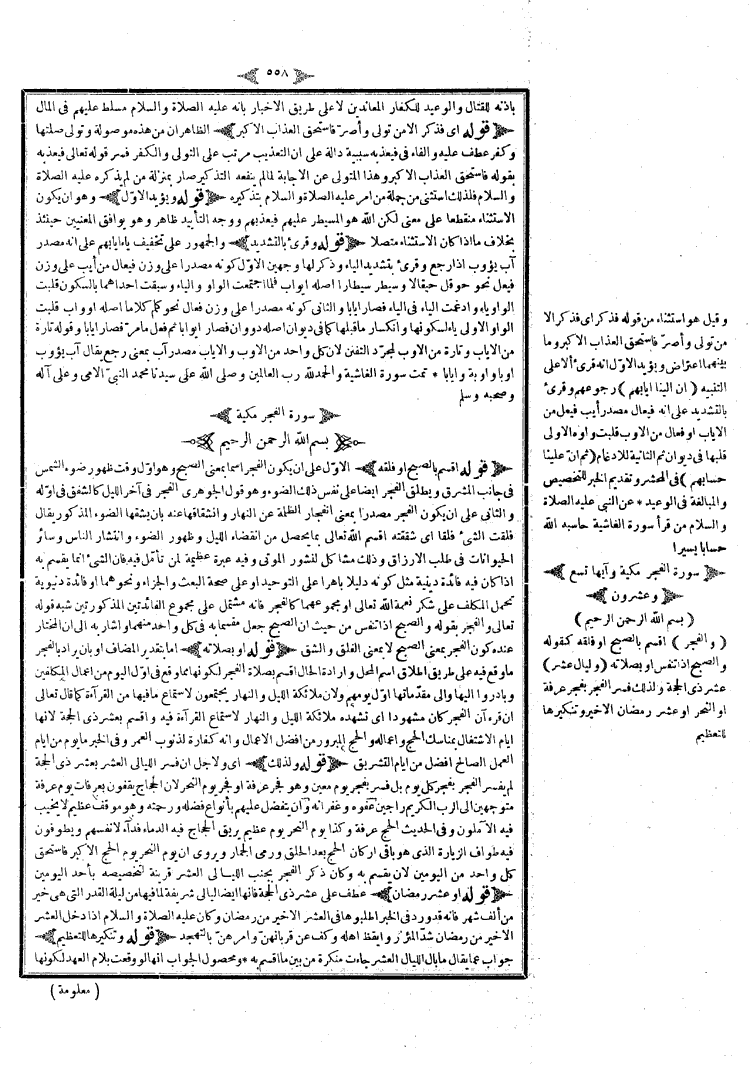 ٥٥٨
باذنه للقتال والوعيد للكفار المعاندين لا على طريق الاخبار بانه عليه الصلاة والسلام مسلط عليهم فى المال
قوله اى فذكر الا من تولى وأصر فاستحق العذاب الاكبر الظاهر ان من هذه موصولة وتولى صلتها
وكفر عطف عليه والفاء فى فيعذبه سببية دالة على ان التعذيب مرتب على التولى والكفر فسر قوله تعالى فيعذبه
بقوله فاستحق العذاب الاكبر وهذا المتولى عن الاجابة لما لم ينفعه التذكير صار بمنزلة من لم يذكره عليه الصلاة
والسلام فلذلك استثنى من جملة من امر عليه الصلاة والسلام بتذكيره قوله ويؤيد الاول وهو ان يكون
الاستثناء منقطعا على معنى لكن الله هو المسيطر عليهم فيعذبهم ووجه التأييد ظاهر وهو يوافق المعنيين حينئذ
بخلاف ما اذا كان الاستثناء متصلا قوله وقرئ بالتشديد والجمهور على تخفيف ياء ايابهم على انه مصدر
آب يؤوب اذا رجع وقرئ بتشديد الياء وذكر لها وجهين الاول كونه مصدرا على وزن فيعال من أيب على وزن
فيعل نحو حوقل حيقالا وسيطر سيطارا اصله ايواب فلما اجتمعت الواو والياء وسبقت احداهما بالسكون قلبت
الواو ياء وادغمت الياء فى الياء فصار ايابا والثانى كونه مصدرا على وزن فعال نحو كلم كلاما اصله اوواب قلبت
الواو الاولى ياء لسكونها وانكسار ماقبلها كما فى ديوان اصله دووان فصار ايوابا ثم فعل مامر فصار ايابا وقوله تارة
من الاياب وتارة من الاوب لمجرد التفنن لان كل واحد من الاوب والاياب مصدر آب بمعنى رجع يقال آب يؤوب
اوبا واوبة وايابا * تمت سورة الغاشية والحمدلله رب العالمين وصلى الله على سيدنا محمد النبى الامى وعلى آله
وصحبه وسلم
سورة الفجر مكية
بسم الله الرحمن الرحيم
قوله اقسم بالصبح او فلقه الاول على ان يكون الفجر اسما بمعنى الصبح وهو اول وقت ظهور ضوء الشمس
فى جانب المشرق ويطلق الفجر ايضا على نفس ذلك الضوء وهو قول الجوهرى الفجر فى آخر الليل كالشفق فى اوله
والثانى على ان يكون الفجر مصدرا بمعنى انفجار الظلمة عن النهار وانشقاقها عنه بان يشقها الضوء المذكور يقال
فلقت الشئ فلقا اى شققته اقسم الله تعالى بما يحصل من انقضاء الليل وظهور الضوء وانتشار الناس وسائر
الحيوانات فى طلب الارزاق وذلك مشاكل لنشور الموتى وفيه عبرة عظيمة لمن تأمل فيه فان الشئ انما يقسم به
اذا كان فيه فائدة دينية مثل كونه دليلا باهرا على التوحيد او على صحة البعث والجزاء ونحوهما او فائدة دنيوية
تحمل المكلف على شكر نعمة الله تعالى او مجموعهما كالفجر فانه مشتمل على مجموع الفائدتين المذكورتين شبه قوله
تعالى والفجر بقوله والصبح اذا تنفس من حيث ان الصبح جعل مقسما به فى كل واحد منهما واشار به الى ان المختار
عنده كون الفجر بمعنى الصبح لا بمعنى الفلق والشق قوله او بصلاته اما بتقدير المضاف او بان يراد بالفجر
ما وقع فيه على طريق اطلاق اسم المحل وارادة الحال اقسم بصلاة الفجر لكونها مما وقع فى اول اليوم من اعمال المكلفين
وبادروا اليها والى مقدماتها اول يومهم ولان ملائكة الليل والنهار يجتمعون لاستماع مافيها من القرآءة كما قال تعالى
ان قرءآن الفجر كان مشهودا اى تشهده ملائكة الليل والنهار لاستماع القرآءة فيه واقسم بعشر ذى الحجة لانها
ايام الاشتغال بمناسك الحج واعماله والحج المبرور من افضل الاعمال وانه كفارة لذنوب العمر وفى الخبر ما يوم من ايام
العمل الصالح افضل من ايام التشريق قوله ولذلك اى ولاجل ان فسر الليالى العشر بعشر ذى الحجة
لم يفسر الفجر بفجر كل يوم بل فسر بفجر يوم معين وهو فجر عرفة او فجر يوم النحر لان الحجاج يقفون بعرفات يوم عرفة
متوجهين الى الرب الكريم راجين عفوه وغفرانه وان يتفضل عليهم بأنواع فضله ورحمته وهو موقف عظيم لا يخيب
فيه الآملون وفى الحديث الحج عرفة وكذا يوم النحر يوم عظيم يريق الحجاج فيه الدماء فدآء لانفسهم ويطوفون
فيه طواف الزيارة الذى هو باقى اركان الحج بعد الحلق ورمى الجمار ويروى ان يوم النحر يوم الحج الاكبر فاستحق
كل واحد من اليومين لان يقسم به وكان ذكر الفجر بجنب الليالى العشر قرينة لتخصيصه بأحد اليومين
قوله او عشر رمضان عطف على عشر ذى الحجة فانها ايضا ليالى شريفة لما فيها من ليلة القدر التى هى خير
من ألف شهر فانه قد ورد فى الخبر اطلبوها فى العشر الاخير من رمضان وكان عليه الصلاة والسلام اذا دخل العشر
الاخير من رمضان شد المئزر وايقظ اهله وكف عن قربانهن وامرهن بالتهجد قوله وتنكيرها للتعظيم
جواب عما يقال ما بال الليال العشر جاءت منكرة من بين ما اقسم به * ومحصول الجواب انها لو وقعت بلام العهد لكونها
( معلومة )
وقيل هو استثناء من قوله فذكر اى فذكر الا
من تولى وأصر فاستحق العذاب الاكبر وما
بينهما اعتراض ويؤيد الاول انه قرئ ألا على
التنبيه ( ان الينا ايابهم ) رجوعهم وقرئ
بالتشديد على انه فيعال مصدر أيب فيعل من
الاياب او فعال من الاوب قلبت واوه الاولى
قلبها فى ديوان ثم الثانية للادغام ( ثم ان علينا
حسابهم ) فى المحشر وتقديم الخبر للتخصيص
والمبالغة فى الوعيد * عن النبى عليه الصلاة
والسلام من قرأ سورة الغاشية حاسبه الله
حسابا يسيرا
سورة الفجر مكية وآيها تسع
وعشرون
( بسم الله الرحمن الرحيم )
( والفجر ) اقسم بالصبح او فلقه كقوله
والصبح اذا تنفس او بصلاته ( وليال عشر )
عشر ذى الحجة ولذلك فسر الفجر بفجر عرفة
او النحر او عشر رمضان الاخير وتنكيرها
للتعظيم